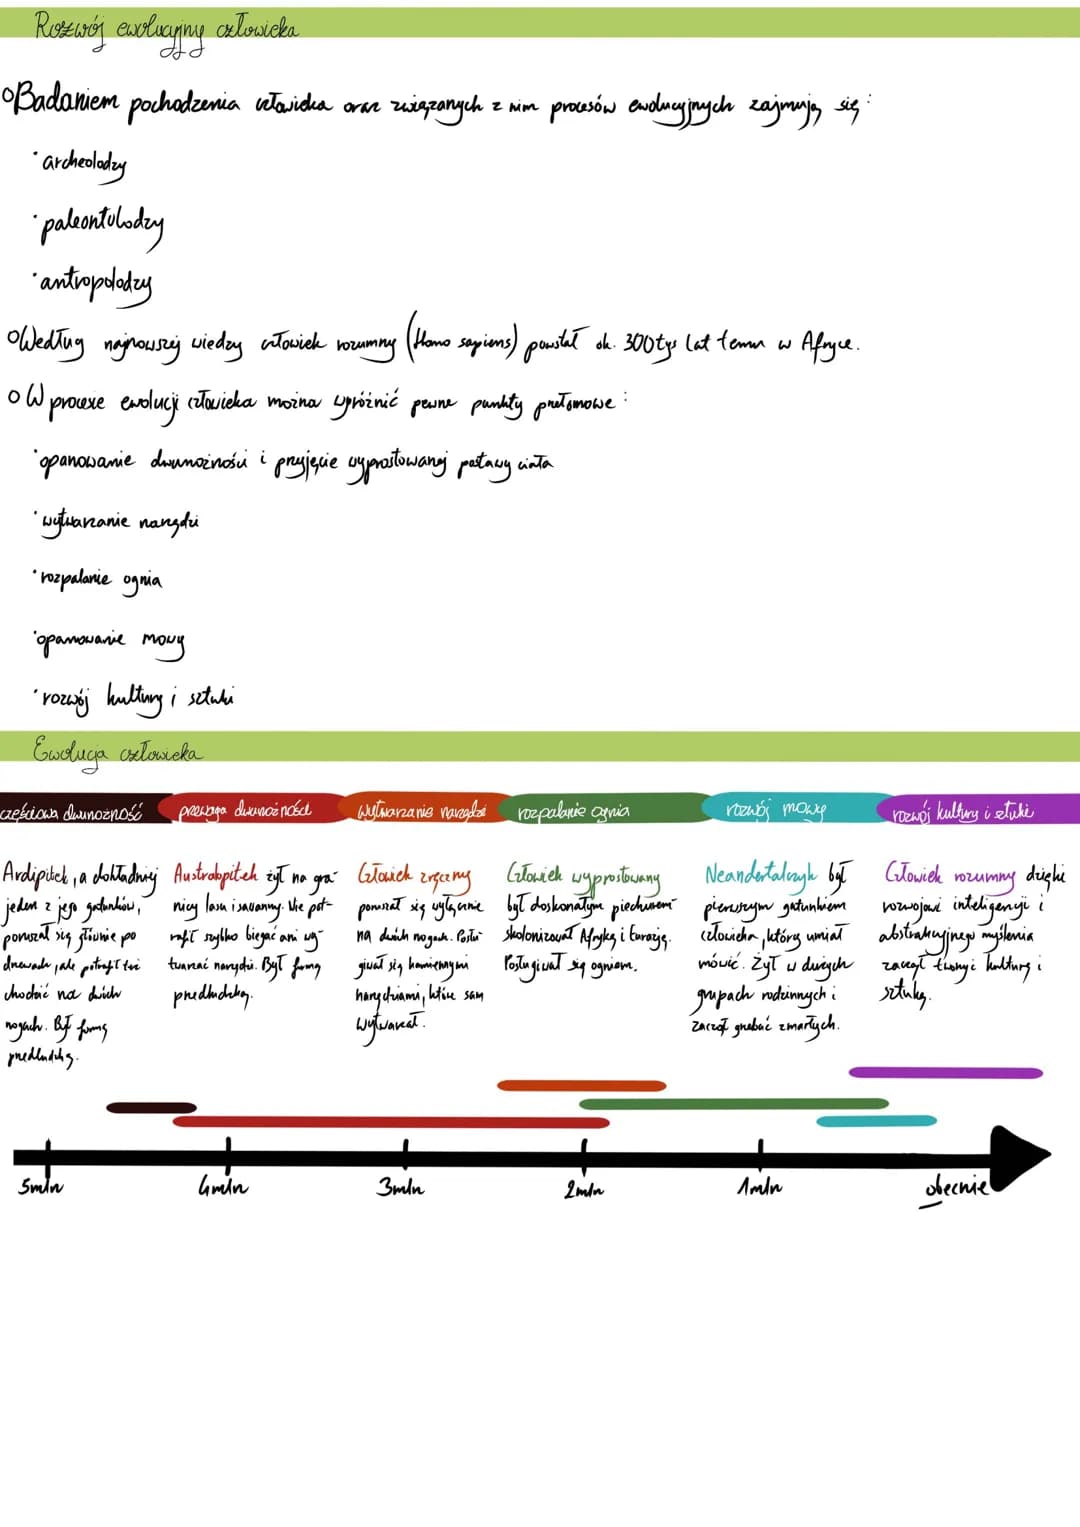 Rozwój ewolucyjny człowieka
Badaniem pochodzenia człowieka oraz związanych z nim procesów ewolucyjnych zajmują się:
archeolodzy
paleontolodzy
antropolodzy
Według najnowszej wiedzy człowiek rozumny (Homo sapiens) powstał ok. 300tys lat temu w Afryce.
W procesie ewolucji człowieka można wyróżnić pewne punkty przełomowe:
opanowanie dwunożności i przyjęcie wyprostowanej postawy ciała
wytwarzanie narzędzi
rozpalanie ognia
opanowanie mowy
rozwój kultury i sztuki
Ewolucja człowieka
częściowa dwunożność
przewaga dwunożności
wytwarzanie narzędzi
rozpalanie ognia
rozwój mowy
rozwój kultury i sztuki
Ardipitek, a dokładniej
jeden z jego gatunków,
poruszał się głównie po
drzewach, ale potrafił też
chodzić na dwóch
nogach. Był formą
przedludzką.
Australopitek żył na gra-
nicy lasu i sawanny. Nie pot-
rafił szybko biegać ani wy-
twarzać narzędzi. Był formą
przedludzką.
Człowiek zręczny
poruszał się wyłącznie
na dwóch nogach. Posłu-
giwał się kamiennymi
narzędziami, które sam
wytwarzał.
Człowiek wyprostowany
był doskonałym piechurem
skolonizował Afrykę i Eurazję.
Posługiwał się ogniem.
Neandertalczyk był
pierwszym gatunkiem
człowieka, który umiał
mówić. Żył w dużych
grupach rodzinnych i
zaczął grzebać zmarłych.
Człowiek rozumny dzięki
rozwojowi inteligencji i
abstrakcyjnego myślenia
zaczął tworzyć kulturę i
sztukę.
5mln
4mln
3mln
2mln
1mln
obecnie